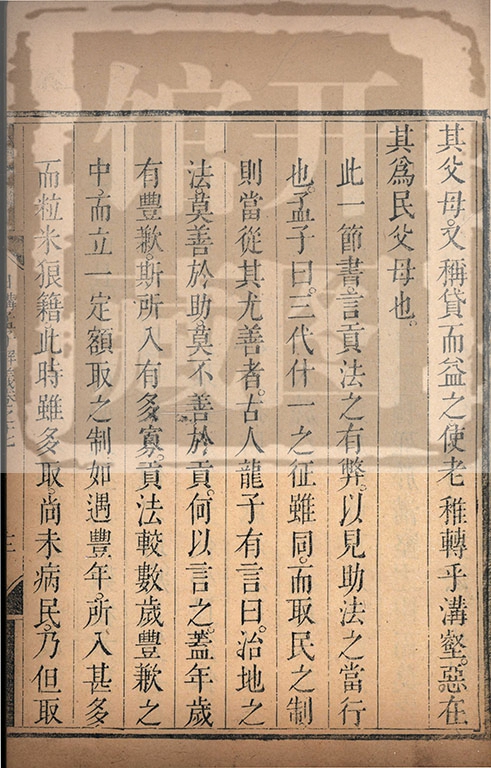 其父母又稱貸而益之使老稚轉乎溝壑惡在
其為民父母也
此一節書言貢法之有弊以見助法之當行
也孟子曰三代什一之征雖同而取民之制
則當從其尤善者古人龍子有言曰治地之
法莫善於助莫不善於貢何以言之蓋年歲
有豐歉斯所入有多寡貢法較數歲豐歉之
中而立一定額取之制如遇豐年所入甚多
而粒米狼籍此時雖多取尚未病民乃但取